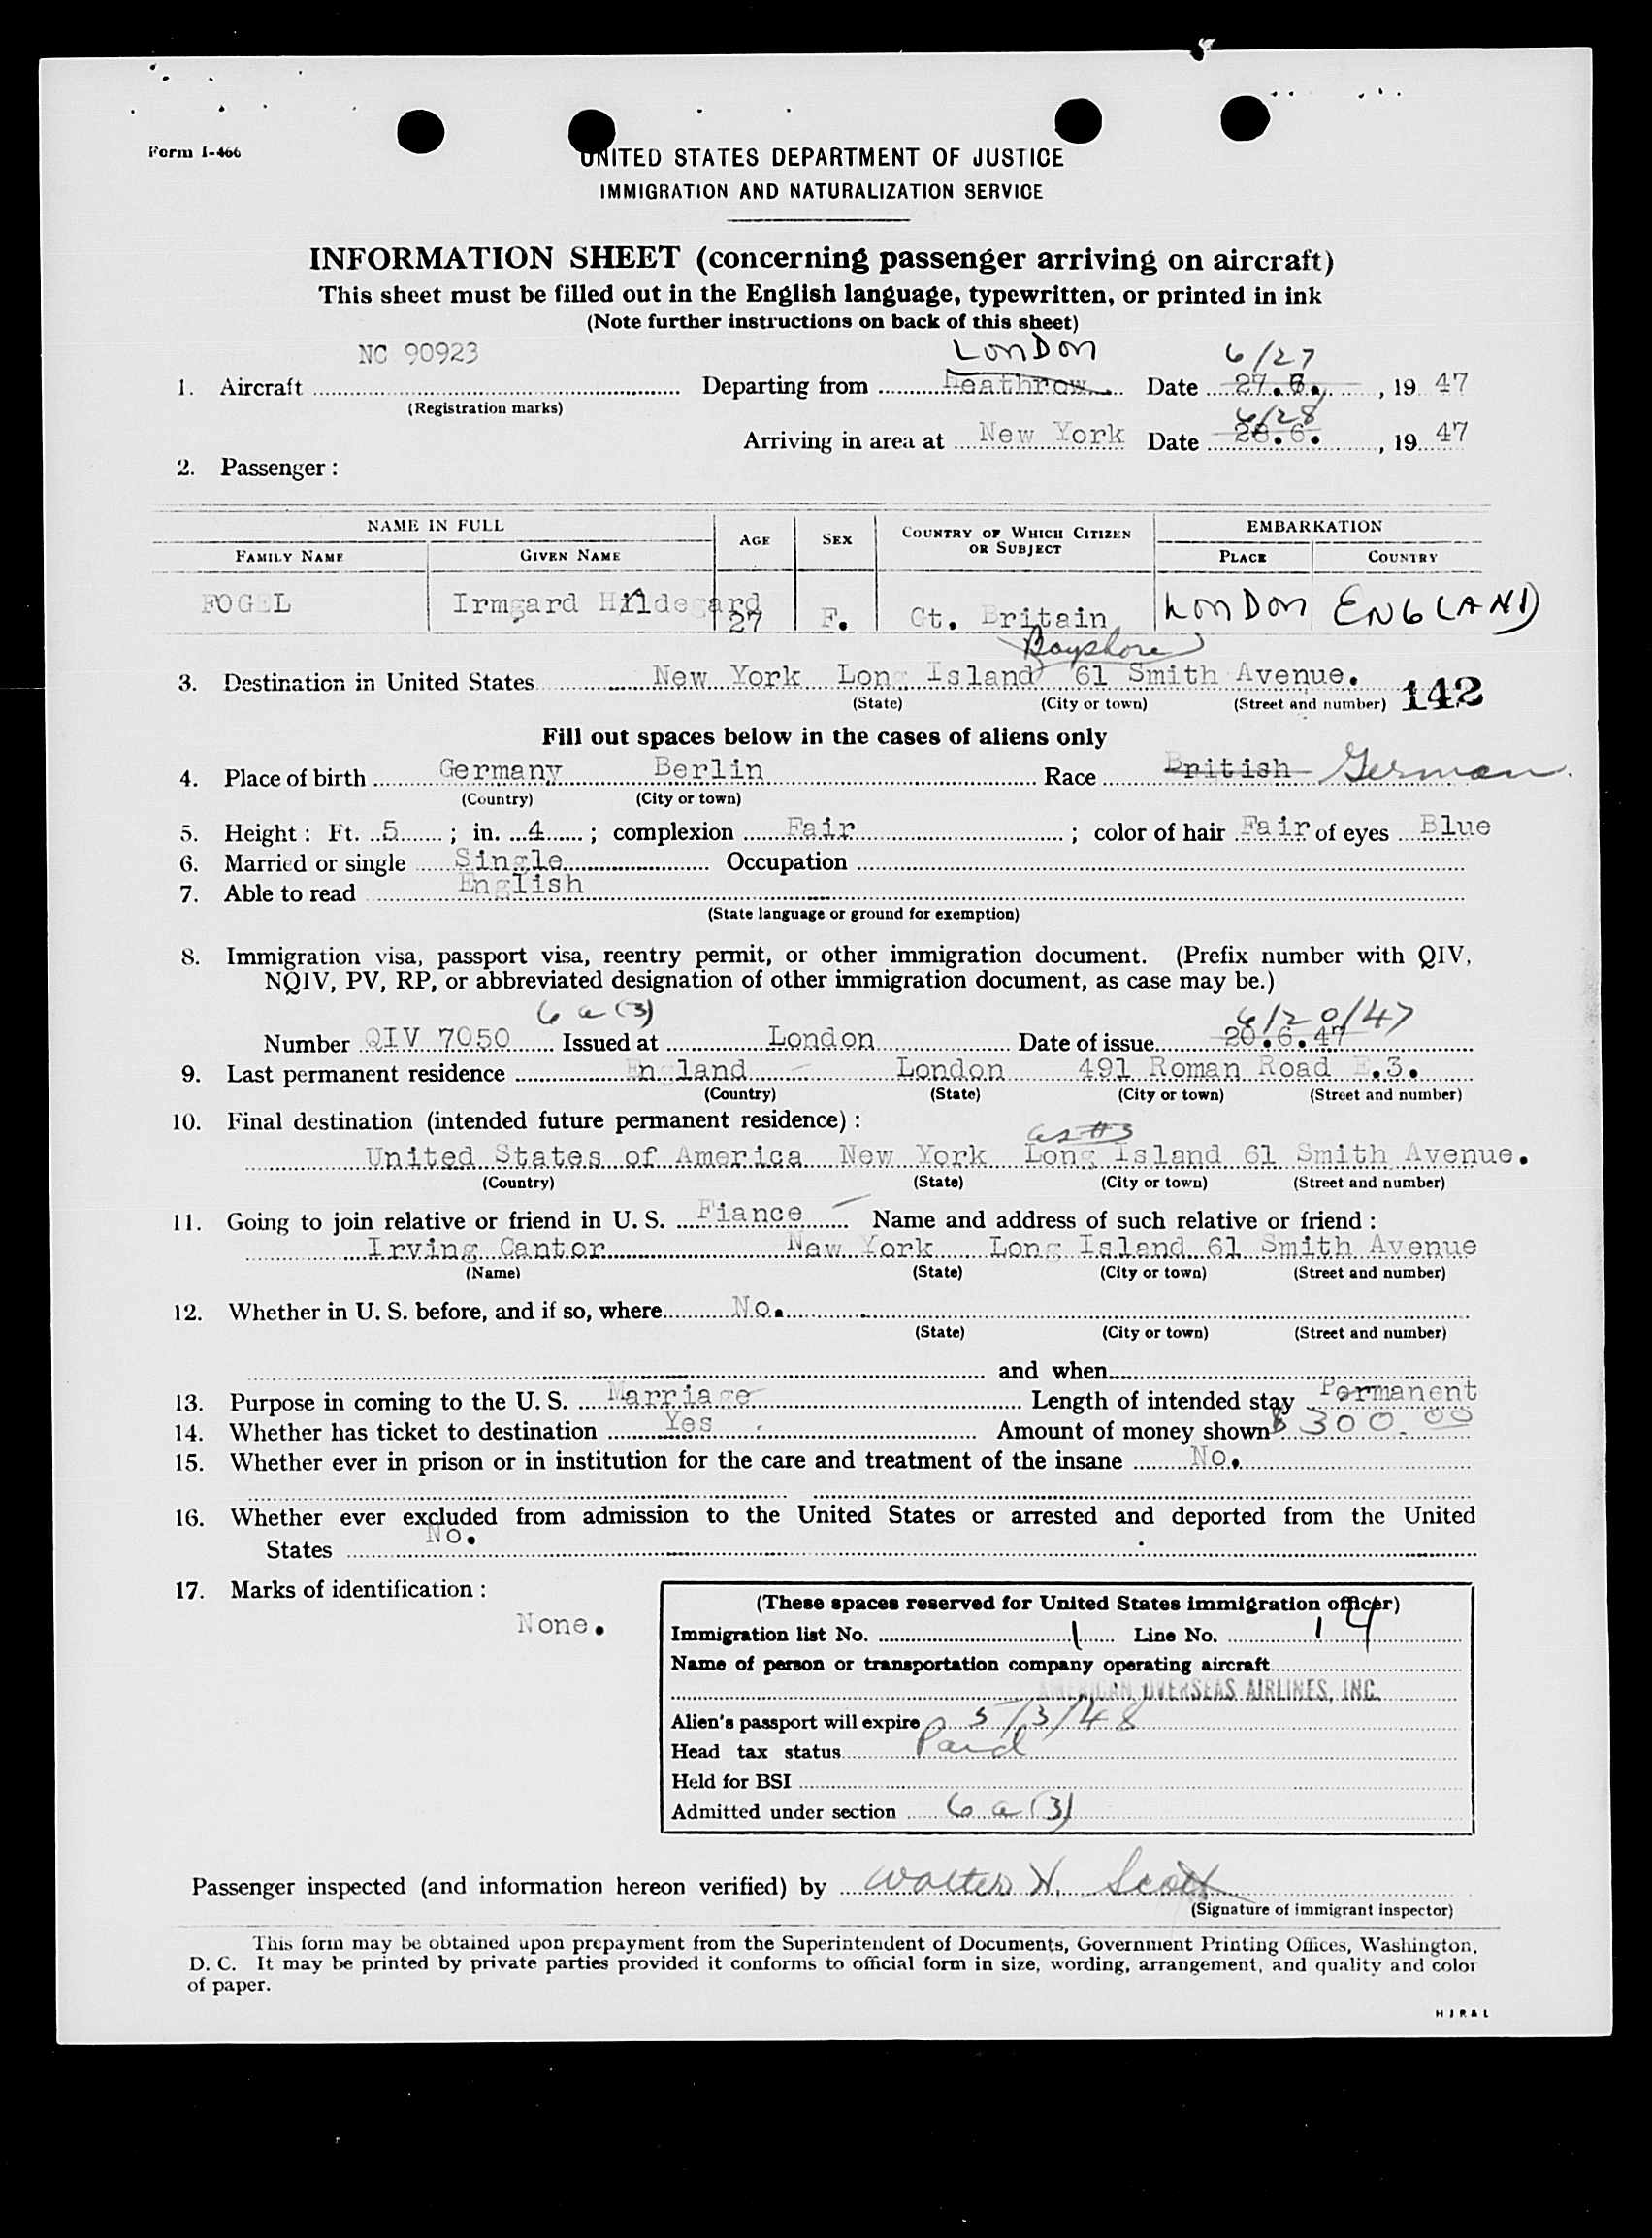 Form I-466
UNITED STATES DEPARTMENT OF JUSTICE
IMMIGRATION AND NATURALIZATION SERVICE
INFORMATION SHEET (concerning passenger arriving on aircraft)
This sheet must be filled out in the English language, typewritten, or printed in ink
(Note further instructions on back of this sheet)
NC 90923 LONDON 6/27
1. Aircraft Departing from Heathrow. Date 27.6., 19 47
(Registration marks) 6/28
Arriving in area at New York Date 28.6., 19 47
2. Passenger:
NAME IN FULL AGE SEX COUNTRY OF WHICH CITIZEN OR SUBJECT EMBARKATION
FAMILY NAME GIVEN NAME PLACE COUNTRY
FOGEL Irmgard Hildegard 27 F. Gt. Britain LONDON ENGLAND
Bayshore
3. Destination in United States New York Long Island 61 Smith Avenue.
(State) (City or town) (Street and number) 142
Fill out spaces below in the cases of aliens only
4. Place of birth Germany Berlin Race British German
(Country) (City or town)
5. Height: Ft. 5; in. 4; complexion Fair; color of hair Fair of eyes Blue
6. Married or single Single Occupation
7. Able to read English
(State language or ground for exemption)
8. Immigration visa, passport visa, reentry permit, or other immigration document. (Prefix number with QIV,
NQIV, PV, RP, or abbreviated designation of other immigration document, as case may be.)
6 a (3) 6/20/47
Number QIV 7050 Issued at London Date of issue 20.6.47
9. Last permanent residence England London 491 Roman Road E.3.
(Country) (State) (City or town) (Street and number)
10. Final destination (intended future permanent residence):
as #3
United States of America New York Long Island 61 Smith Avenue.
(Country) (State) (City or town) (Street and number)
11. Going to join relative or friend in U. S. Fiance Name and address of such relative or friend:
Irving Cantor New York Long Island 61 Smith Avenue
(Name) (State) (City or town) (Street and number)
12. Whether in U. S. before, and if so, where No.
(State) (City or town) (Street and number)
and when
13. Purpose in coming to the U. S. Marriage Length of intended stay Permanent
14. Whether has ticket to destination Yes Amount of money shown $300.00
15. Whether ever in prison or in institution for the care and treatment of the insane No.
16. Whether ever excluded from admission to the United States or arrested and deported from the United
States No.
17. Marks of identification:
None.
(These spaces reserved for United States immigration officer)
Immigration list No. 1 Line No. 14
Name of person or transportation company operating aircraft
AMERICAN OVERSEAS AIRLINES, INC.
Alien's passport will expire 5/3/48
Head tax status Paid
Held for BSI
Admitted under section 6 a (3)
Passenger inspected (and information hereon verified) by Walter H. Scott
(Signature of immigrant inspector)
This form may be obtained upon prepayment from the Superintendent of Documents, Government Printing Offices, Washington,
D. C. It may be printed by private parties provided it conforms to official form in size, wording, arrangement, and quality and color
of paper.